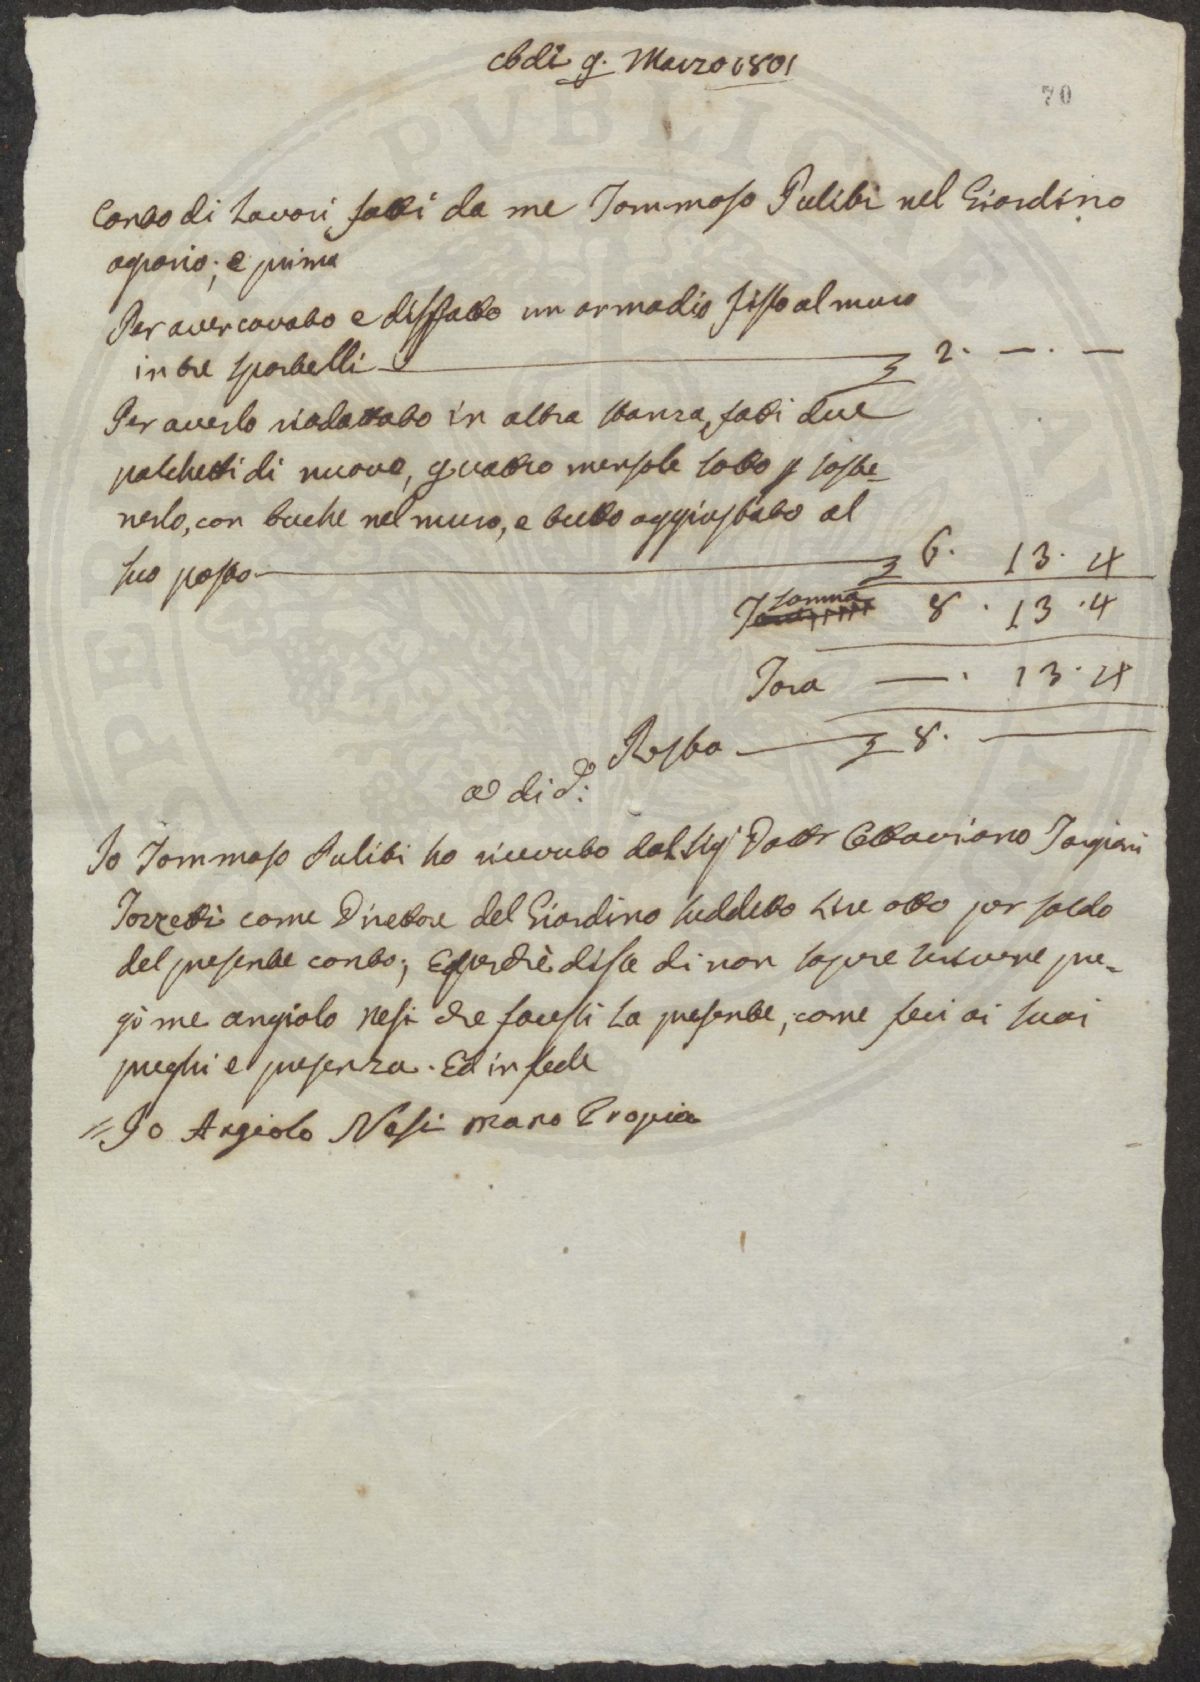 Adi 9. Marzo 1801
70
Conto di Lavori fatti da me Tommaso Puliti nel Giardino
agrario; e prima
Per aver cavato e disffatto un armadio fisso al muro
in tre sportelli £ 2. —. —
Per averlo riadattato in altra stanza, fatti due
palchetti di nuovo, quattro mensole sotto p soste=
nerlo, con buche nel muro, e tutto aggiustato al
suo posto £ 6. 13. 4
Somma 8. 13. 4
Tara —. 13. 4
Resta £ 8. —
a di d.º:
Io Tommaso Puliti ho ricevuto dal Sig Dottr Ottaviano Targioni
Tozzetti come Direttore del Giardino suddetto Lire otto per saldo
del presente conto; e perchè disse di non sapere scrivere pre=
gò me angiolo Nesi che facessi La presente, come feci ai suoi
preghi e presenza. Ed in fede
= Io Angiolo Nesi mano Propia
PVBLIC